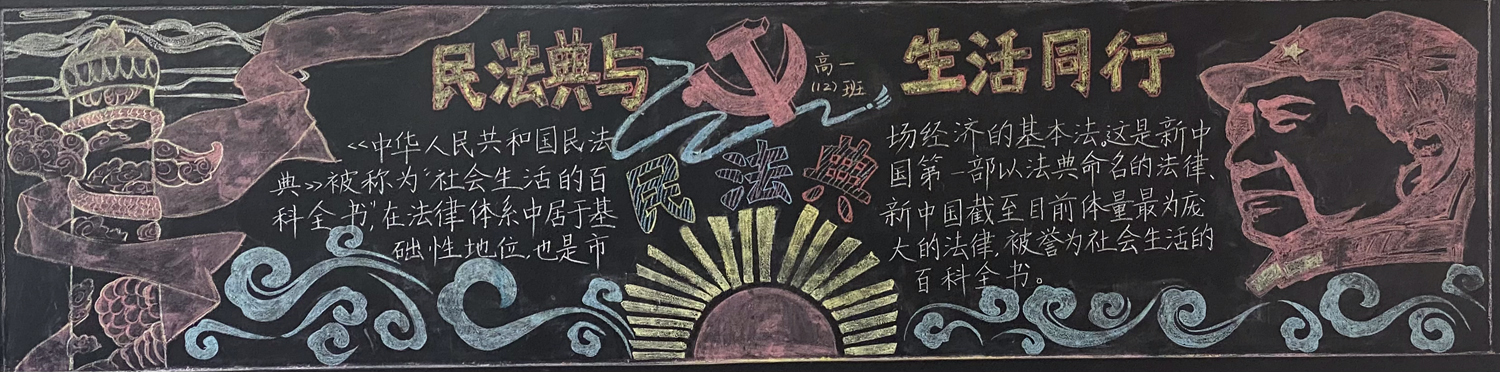 民法典与
生活同行
高一
(12)班
民法典
<<中华人民共和国民法
典>>被称为“社会生活的百
科全书”,在法律体系中居于基
础性地位,也是市
场经济的基本法。这是新中
国第一部以法典命名的法律、
新中国截至目前体量最为庞
大的法律,被誉为社会生活的
百科全书。